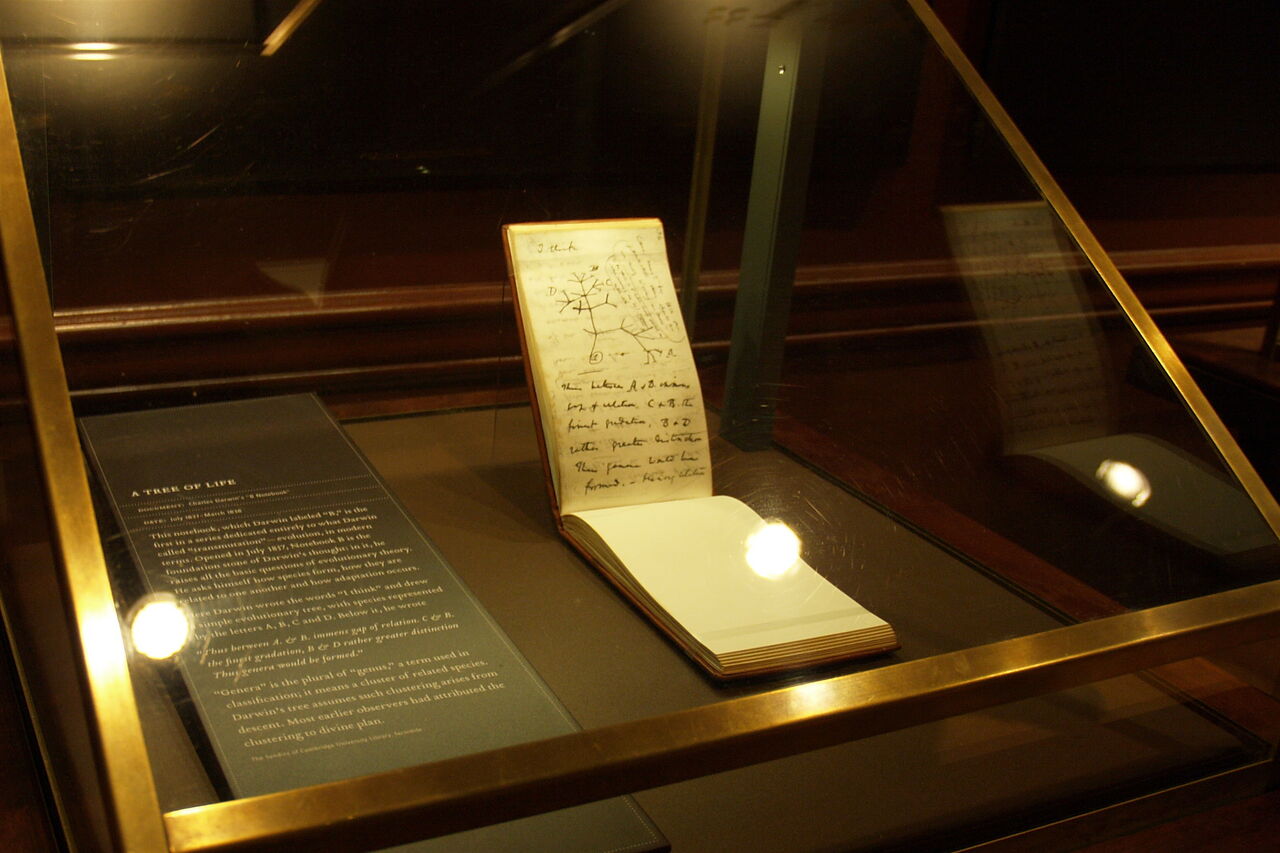 A TREE OF LIFE
DOCUMENT: Charles Darwin's "B Notebook"
DATE: July 1837–March 1838
This notebook, which Darwin labeled "B," is the
first in a series dedicated entirely to what Darwin
called "transmutation" – evolution, in modern
terms. Opened in July 1837, Notebook B is the
foundation stone of Darwin's thought; in it, he
raises all the basic questions of evolutionary theory.
He asks himself how species form, how they are
related to one another and how adaptation occurs.
Here Darwin wrote the words "I think" and drew
simple evolutionary tree, with species represented
by the letters A, B, C and D. Below it, he wrote
"Thus between A. & B. immens gap of relation. C & B.
the finest gradation, B & D rather greater distinction
Thus genera would be formed."
"Genera" is the plural of "genus," a term used in
classification; it means a cluster of related species.
Darwin's tree assumes such clustering arises from
descent. Most earlier observers had attributed the
clustering to divine plan.
The Syndics of Cambridge University Library, facsimile
I think
D
B
C
A
1
Thus between A & B immens
gap of relation. C & B. the
finest gradation, B & D
rather greater distinction
Thus genera would be
formed. – bearing relation